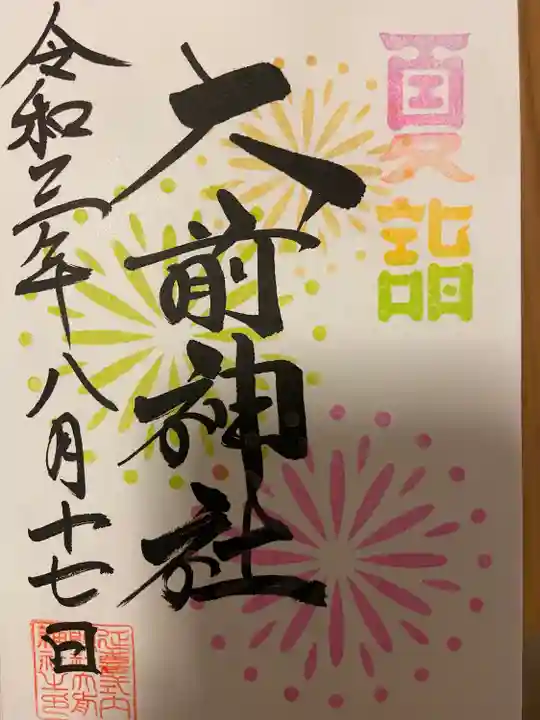 夏詣
大前神社
令和三年八月十七日